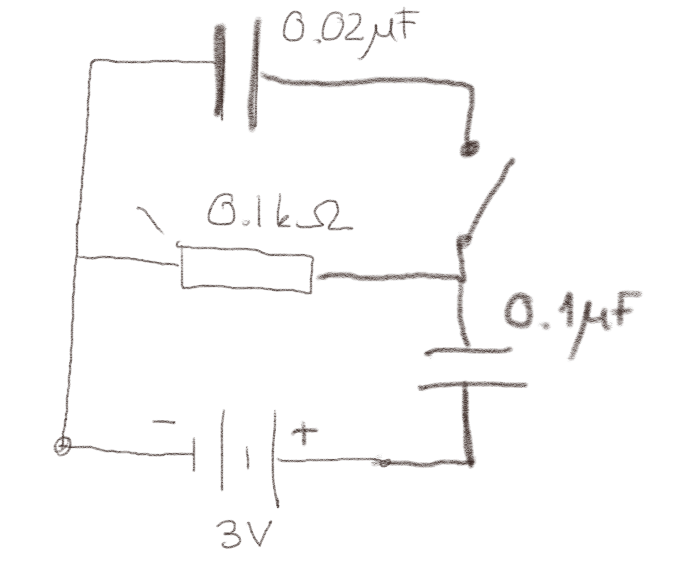 0.02μF
0.1kΩ
0.1μF
- +
3V